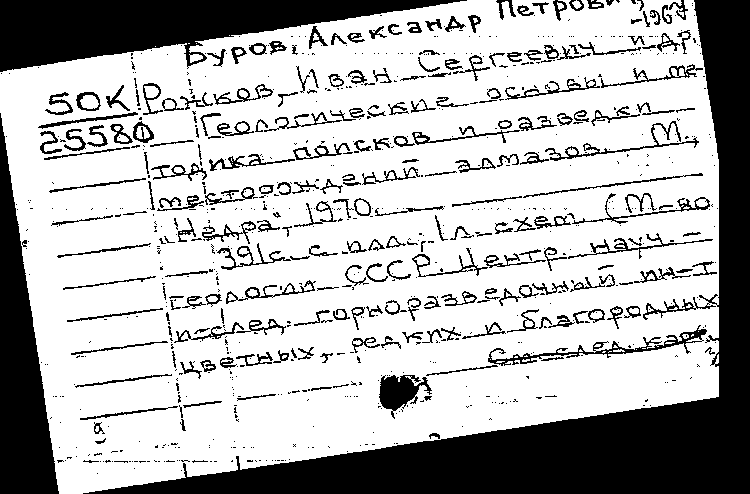 Буров, Александр Петрович,
-1967
50К Рожков, Иван Сергеевич и др.
25580 Геологические основы и ме-
тодика поисков и разведки
месторождений алмазов. М.,
"Недра", 1970.
391с. с илл.; 1л. схем. (М-во
геологии СССР. Центр. науч.-
исслед. горноразведочный ин-т
цветных, редких и благородных
См. след. карт.
а